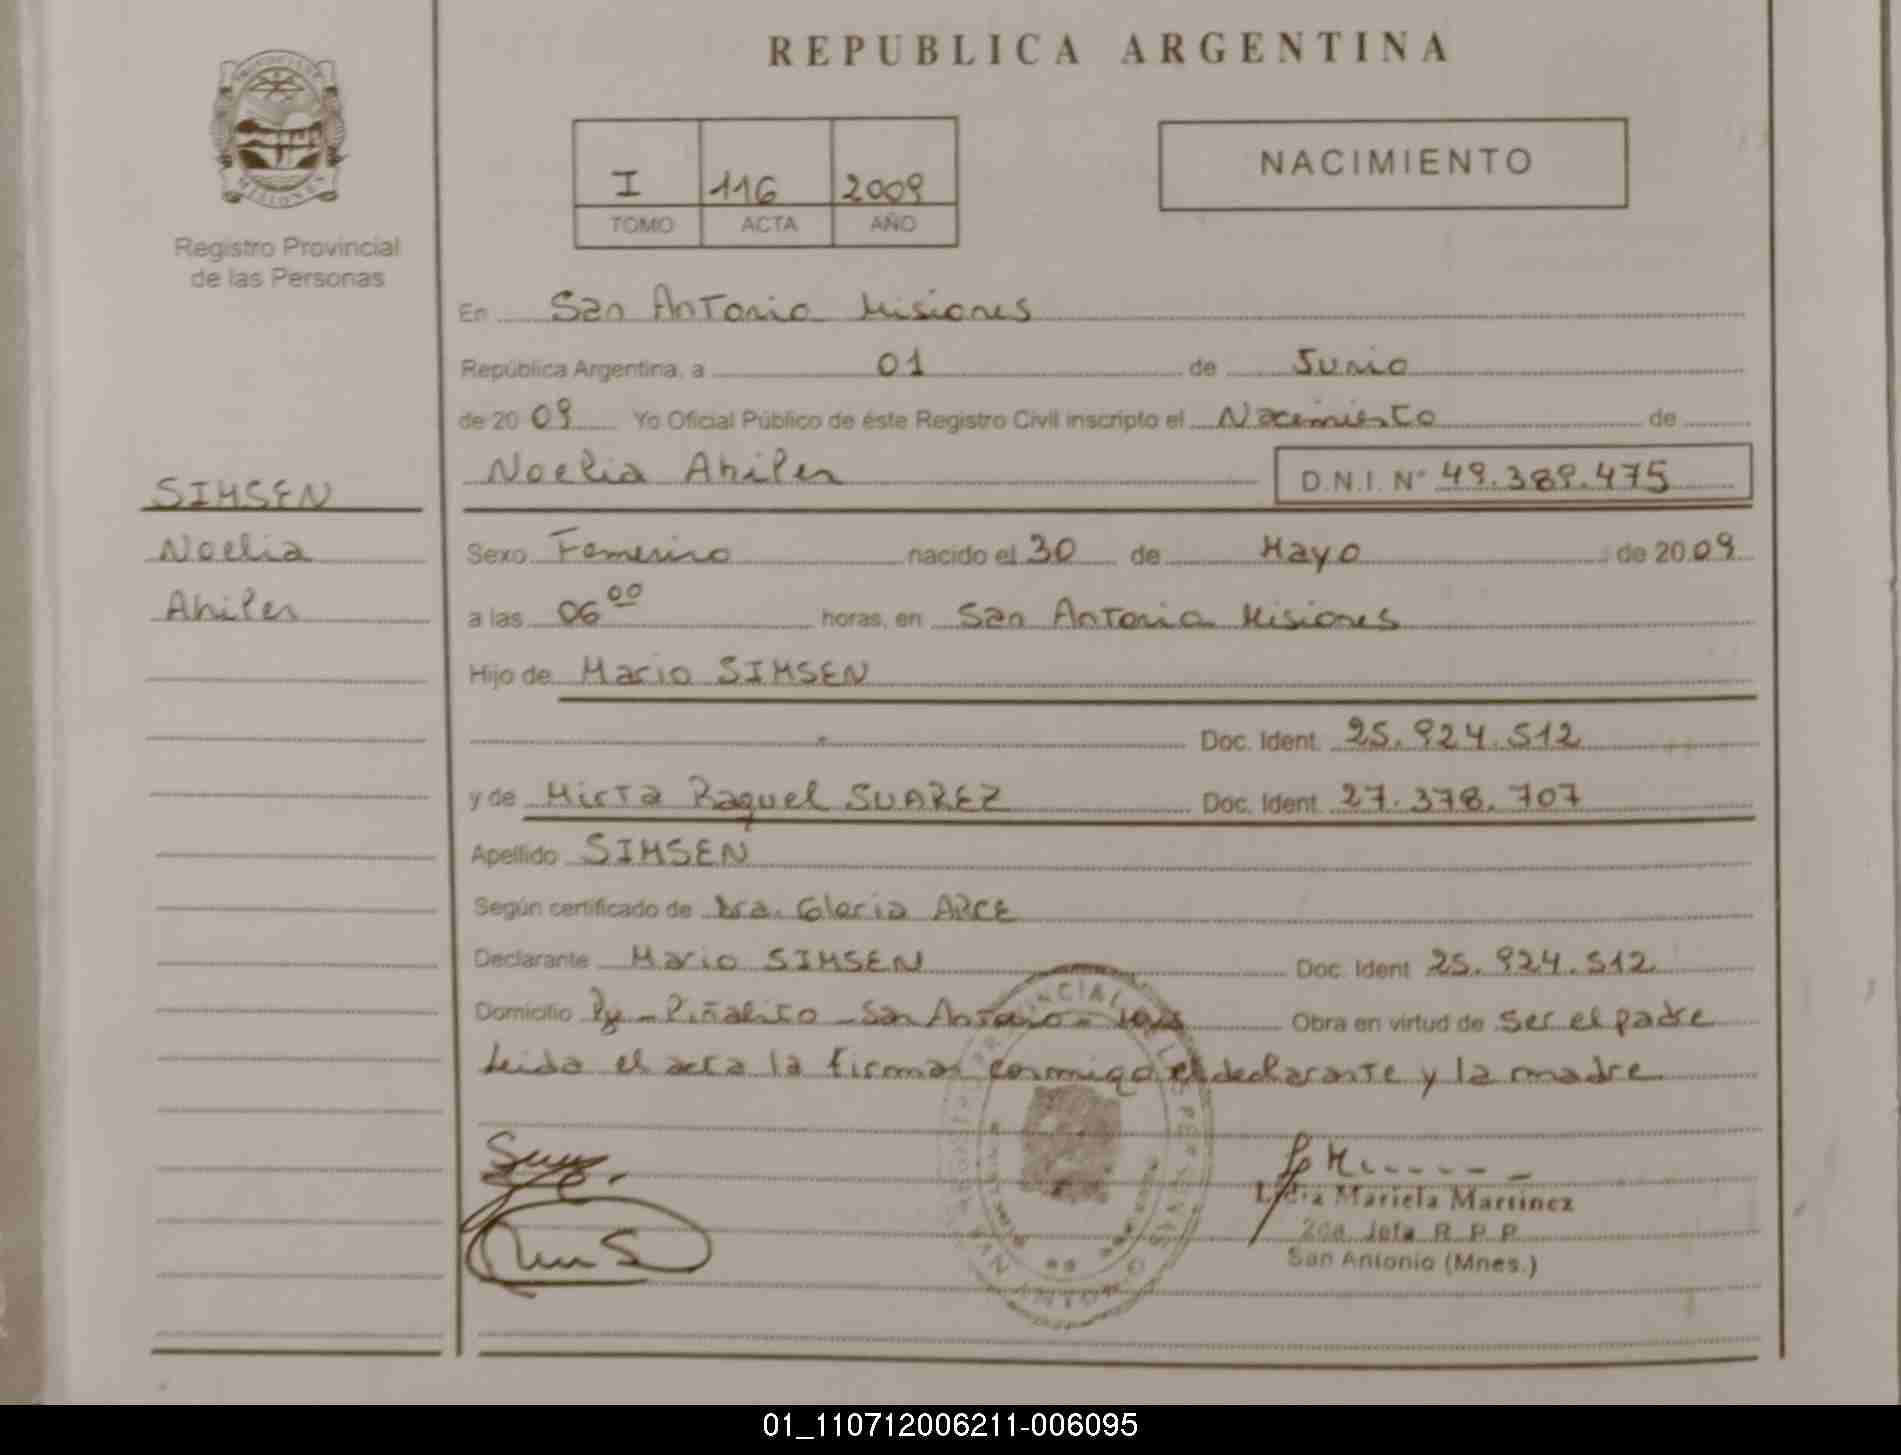 REPUBLICA ARGENTINA
PROVINCIA DE
MISIONES
Registro Provincial
de las Personas
I 116 2009
TOMO ACTA AÑO
NACIMIENTO
En San Antonio Misiones
República Argentina, a 01 de Junio
de 20 09 Yo Oficial Público de éste Registro Civil inscripto el Nacimiento de
Noelia Ahilen
D.N.I. N° 49.389.475
SIMSEN
Noelia
Ahilen
Sexo Femenino nacido el 30 de Mayo de 20 09
a las 06 00 horas, en San Antonio Misiones
Hijo de Mario SIMSEN
Doc. Ident. 25.924.512
y de Mirta Raquel SUAREZ Doc. Ident. 27.378.707
Apellido SIMSEN
Según certificado de Dra. Gloria ARCE
Declarante Mario SIMSEN Doc. Ident 25.924.512
Domicilio Pje - Piñalito - San Antonio - Obra en virtud de ser el padre
Leida el acta la firman conmigo el declarante y la madre
Lydia Mariela Martinez
2da Jefa R. P. P.
San Antonio (Mnes.)
01_110712006211-006095